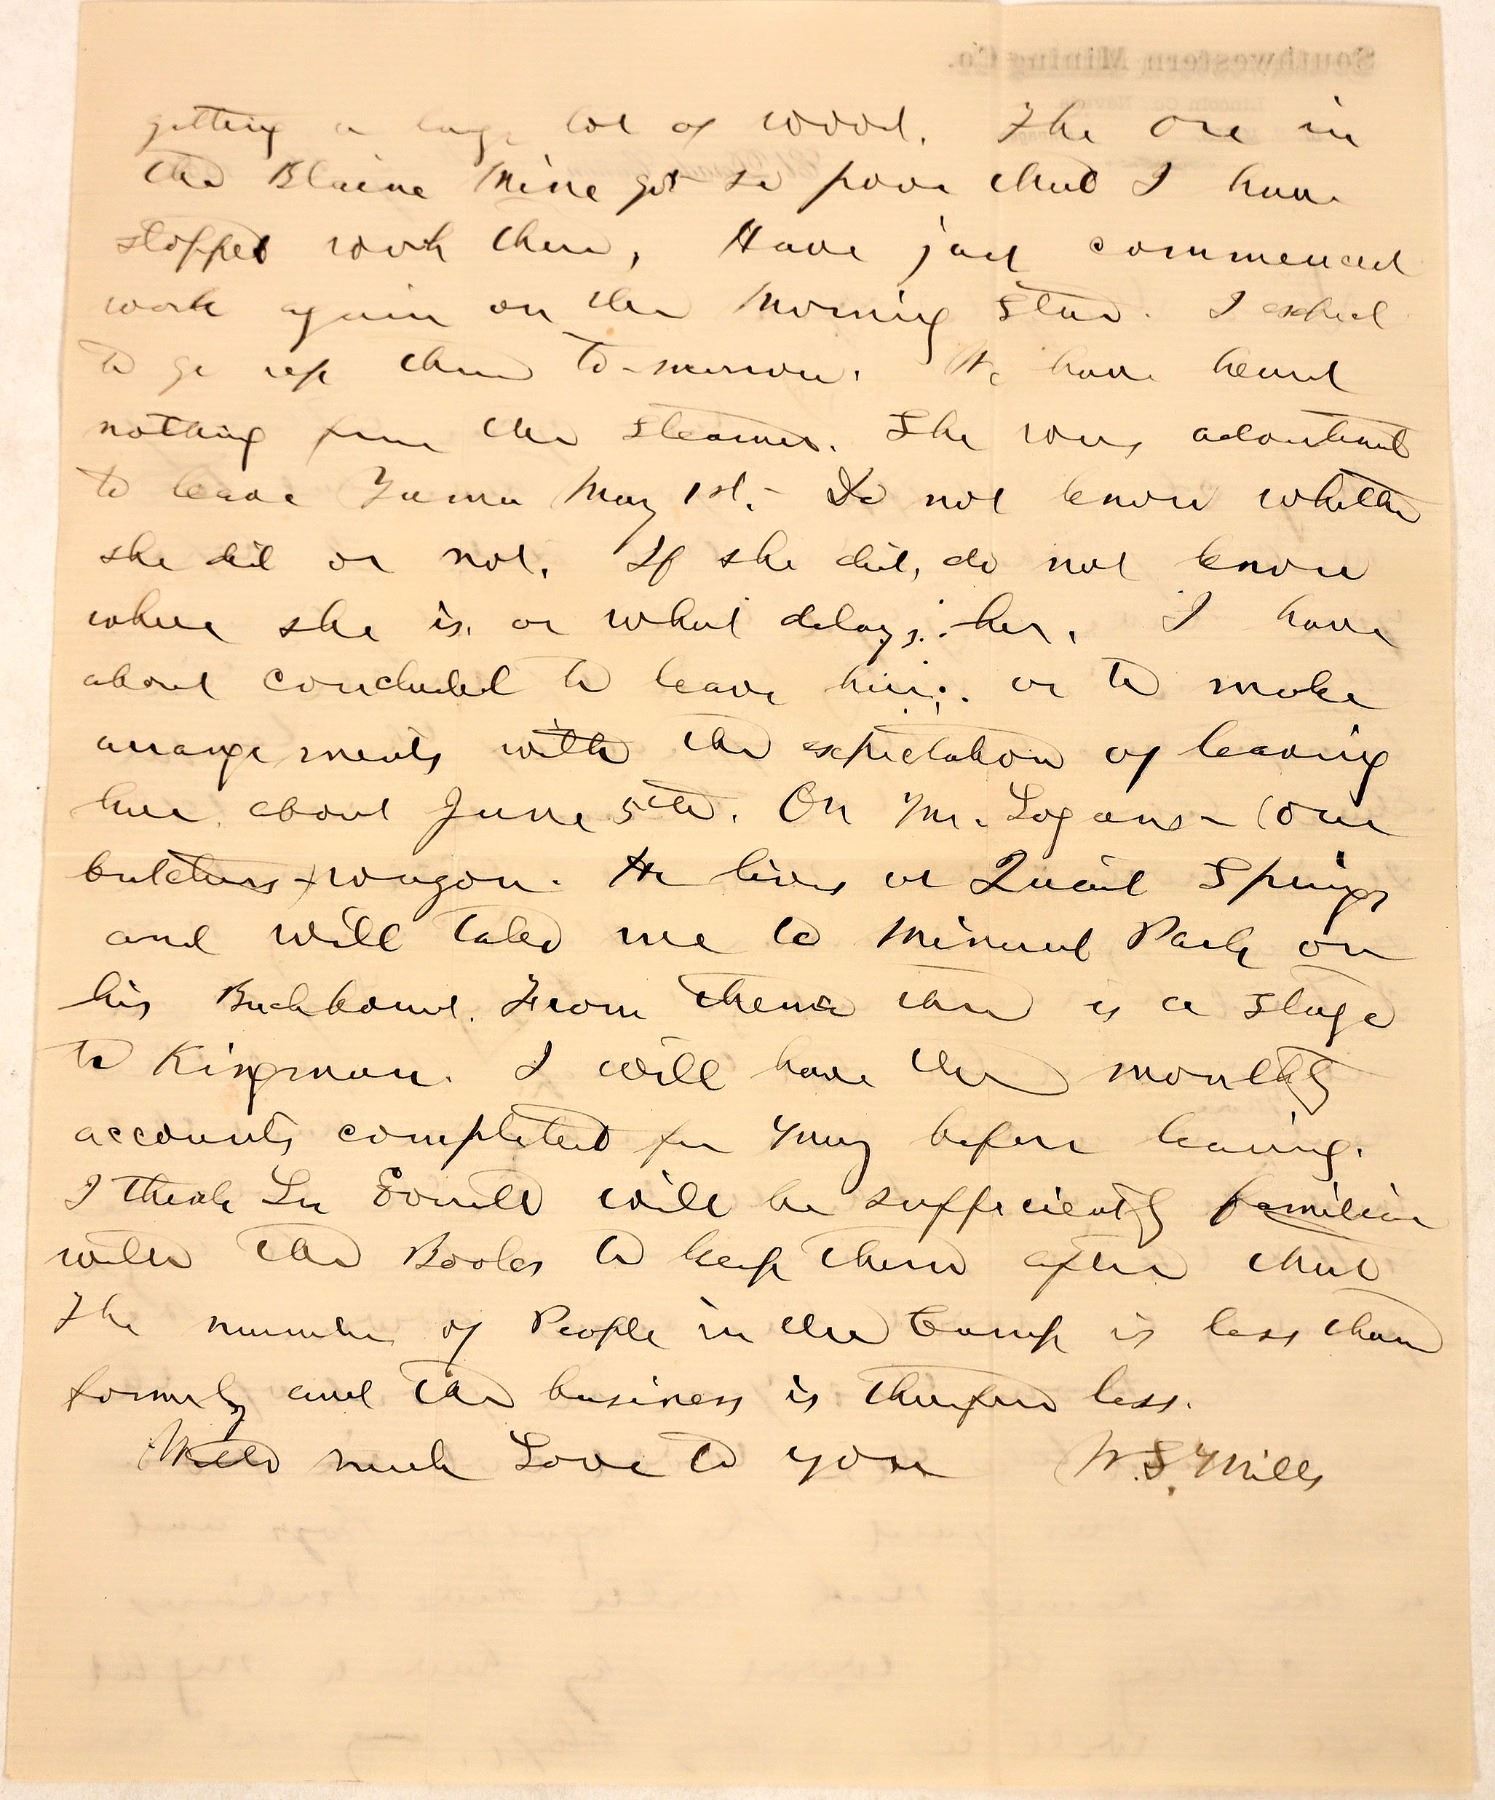 Southwestern Mining Co.
Lincoln Co. Nevada
getting a large lot of wood. The ore in
the Blaine Mine got so poor that I have
stopped work there, Have just commenced
work again on the Morning Star. I expect
to go up there to-morrow. We have heard
nothing from the Steamer. She was advertised
to leave Yuma May 1st.- Do not know whether
she did or not. If she did, do not know
where she is, or what delays her. I have
about concluded to leave here, or to make
arrangements with the expectation of leaving
here about June 5th. On Mr. Logans - (our
butchers - wagon. He lives at Quail Springs
and will take me to Mineral Park on
his Buckboard. From thence there is a Stage
to Kingman. I will have the monthly
accounts completed for May before leaving.
I think Lu will be sufficiently familiar
with the Books to keep them after that
The number of People in the Camp is less than
formerly and the business is therefore less.
With much Love to you W.S. Mills